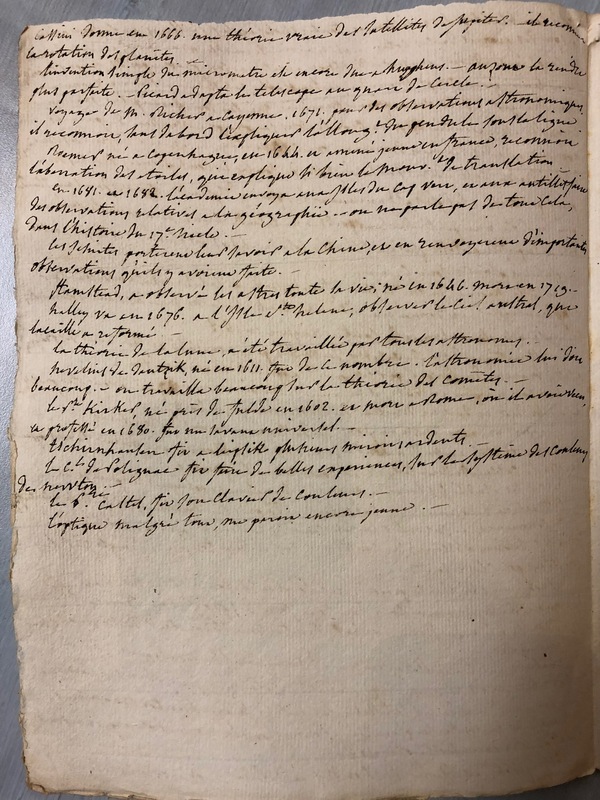 Cassini donne en 1666. une théorie vraie des Satellites de Jupiter. - il reconnoit
la rotation des planètes. -
L'invention simple du micrometre est encore due a huyghens. - auzout la rendit
plus parfaite. - Picard adapta le telescope au quart de Cercle. -
Voyage de M. Richer a Cayenne. 1671. pour des observations astronomiques,
il reconnoit, sans d'abord l'expliquer l'allong.t du pendule sous la ligne
Roemer né a Copenhague, en 1644. et amené jeune en france, reconnoit
l'aberration des etoiles, qui explique si bien le mouv.t de translation
En 1681. et 1682. l'académie envoya aux Isles du Cap verd, et aux antilles, faire
des observations relatives a la géographie - on ne parle pas de tout cela,
dans l'histoire du 17e siecle. -
Les Jesuites porterent leur savoir a la Chine, et en renvoyerent d'importantes
observations qu'ils y avoient faite. -
flamstead, a observé les astres toute la vie, né en 1646. mort en 1719.
halley va en 1676. a l'Isle Ste helene, observer le Ciel austral, que
lacaille a reformé -
la théorie de la lune, a été travaillé par tous les astronomes. -
hevelius de dantzik, né en 1611. fut de ce nombre. l'astronomie lui doit
beaucoup. - on travaille beaucoup sur la théorie des cometes. -
le P. Kirker, né près de fulde en 1602. et mort a Rome, où il avoit vecu,
et professé en 1680. fut un savant universel. -
tschirnhausen fit a leipsik plusieurs miroirs ardents. -
le C.al de Polignac fit faire de belles experiences, sur le systême des Couleurs
de newton. -
le P. Castel, fit son Clavecin de Couleurs. -
l'optique malgré tout, me paroit encore jeune. -